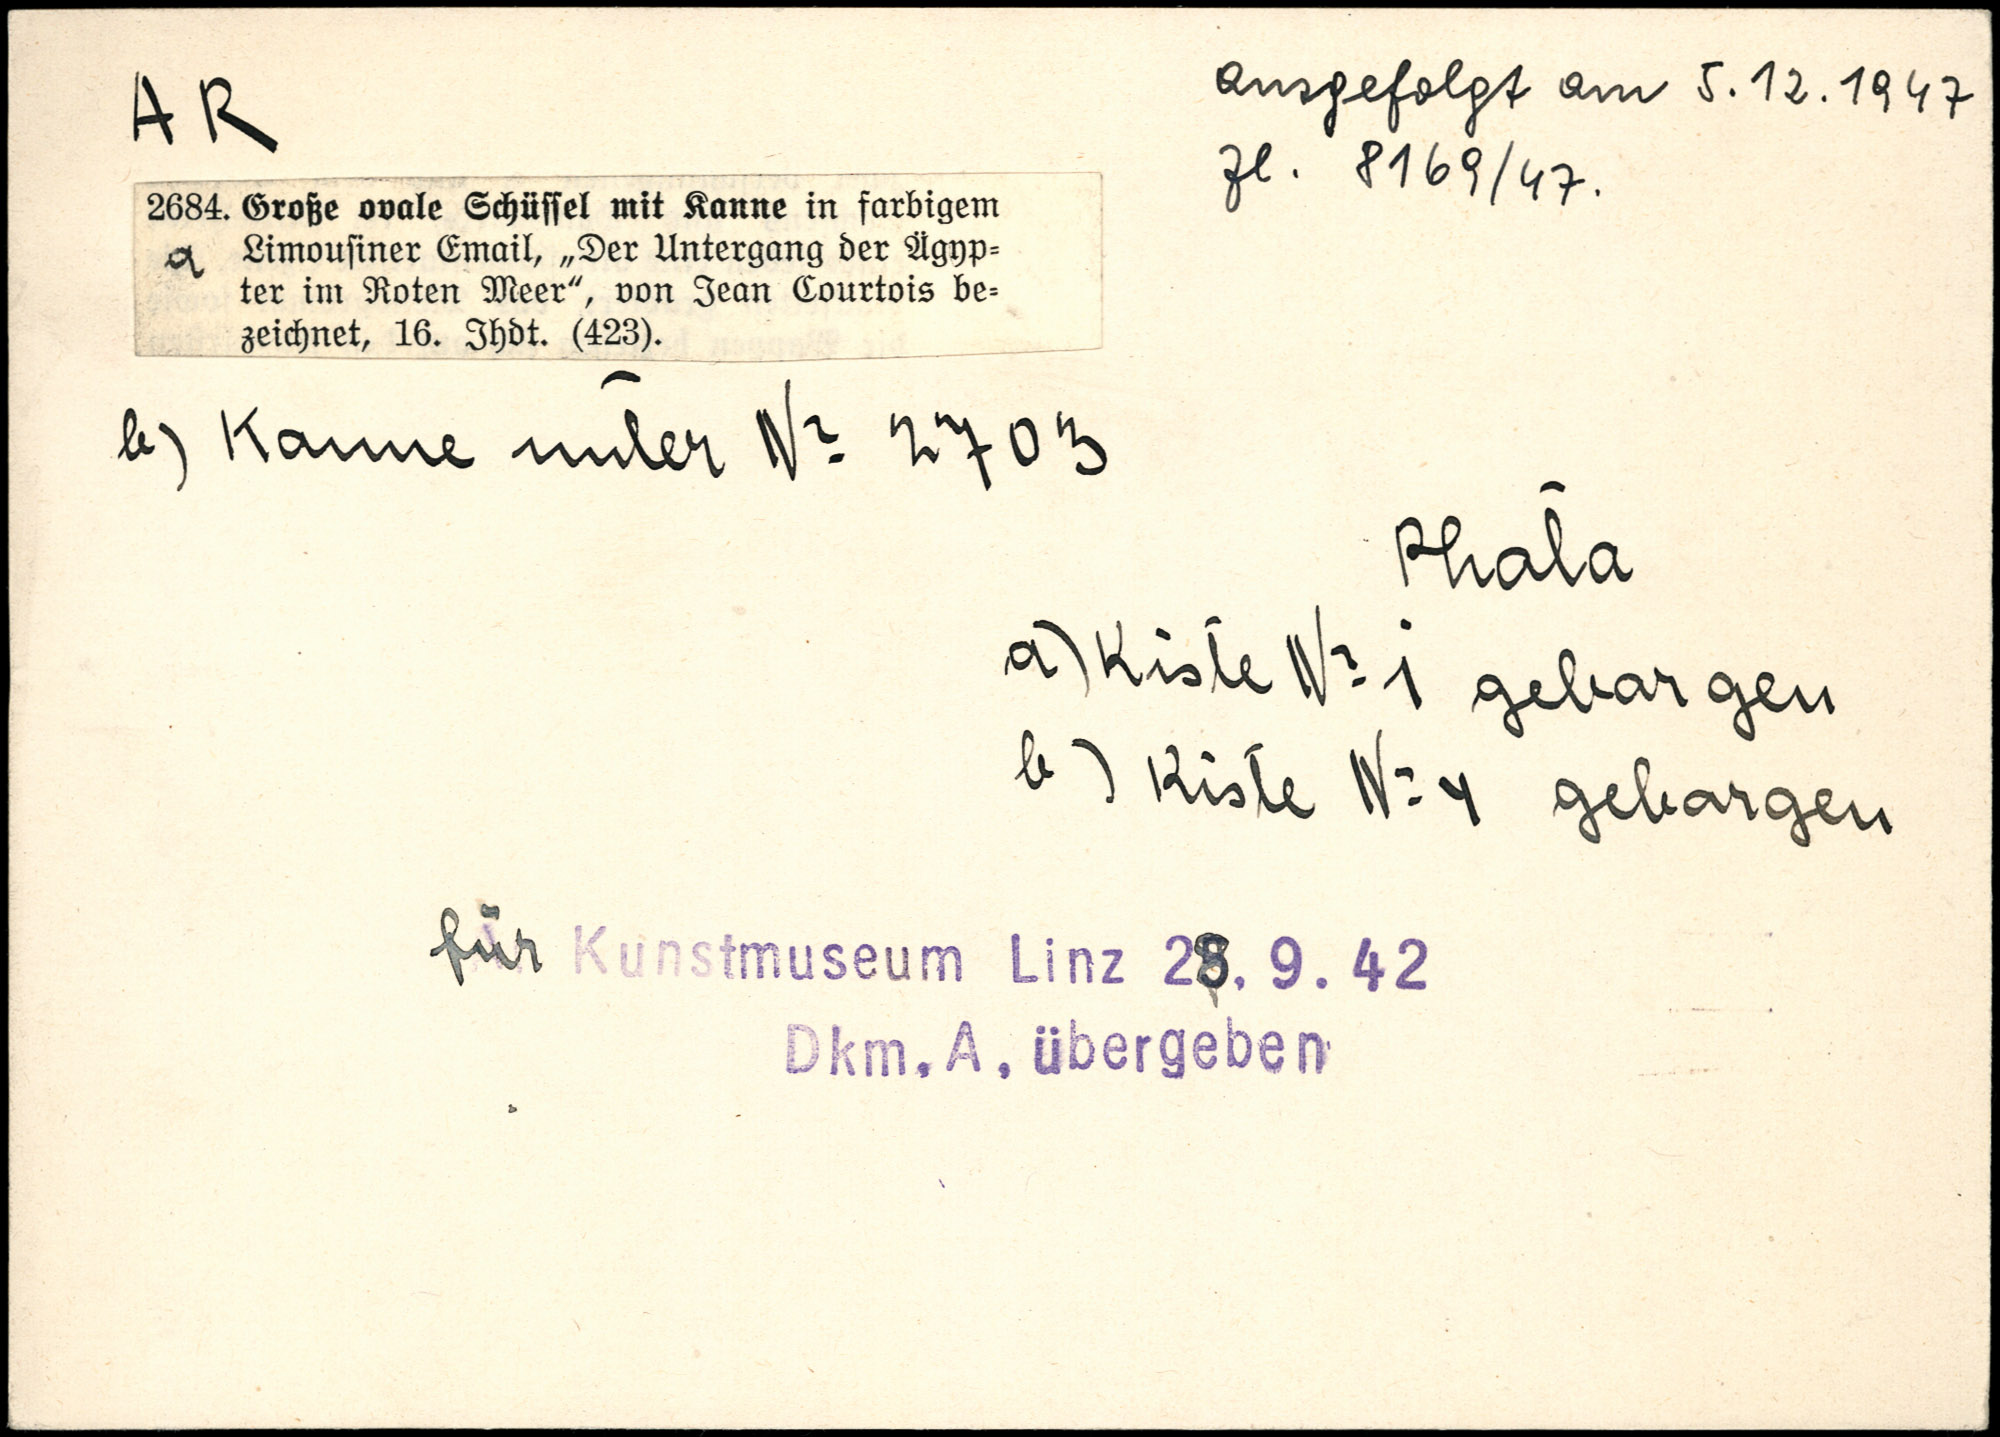 AR
ausgefolgt am 5.12.1947
Zl. 8169/47.
2684. Große ovale Schüssel mit Kanne in farbigem
a Limousiner Email, „Der Untergang der Ägyp-
ter im Roten Meer“, von Jean Courtois be-
zeichnet, 16. Jhdt. (423).
b) Kanne unter Nr 2703
Phota
a) Kiste Nr 1 geborgen
b) Kiste Nr 4 geborgen
für Kunstmuseum Linz 28. 9. 42
Dkm. A. übergeben